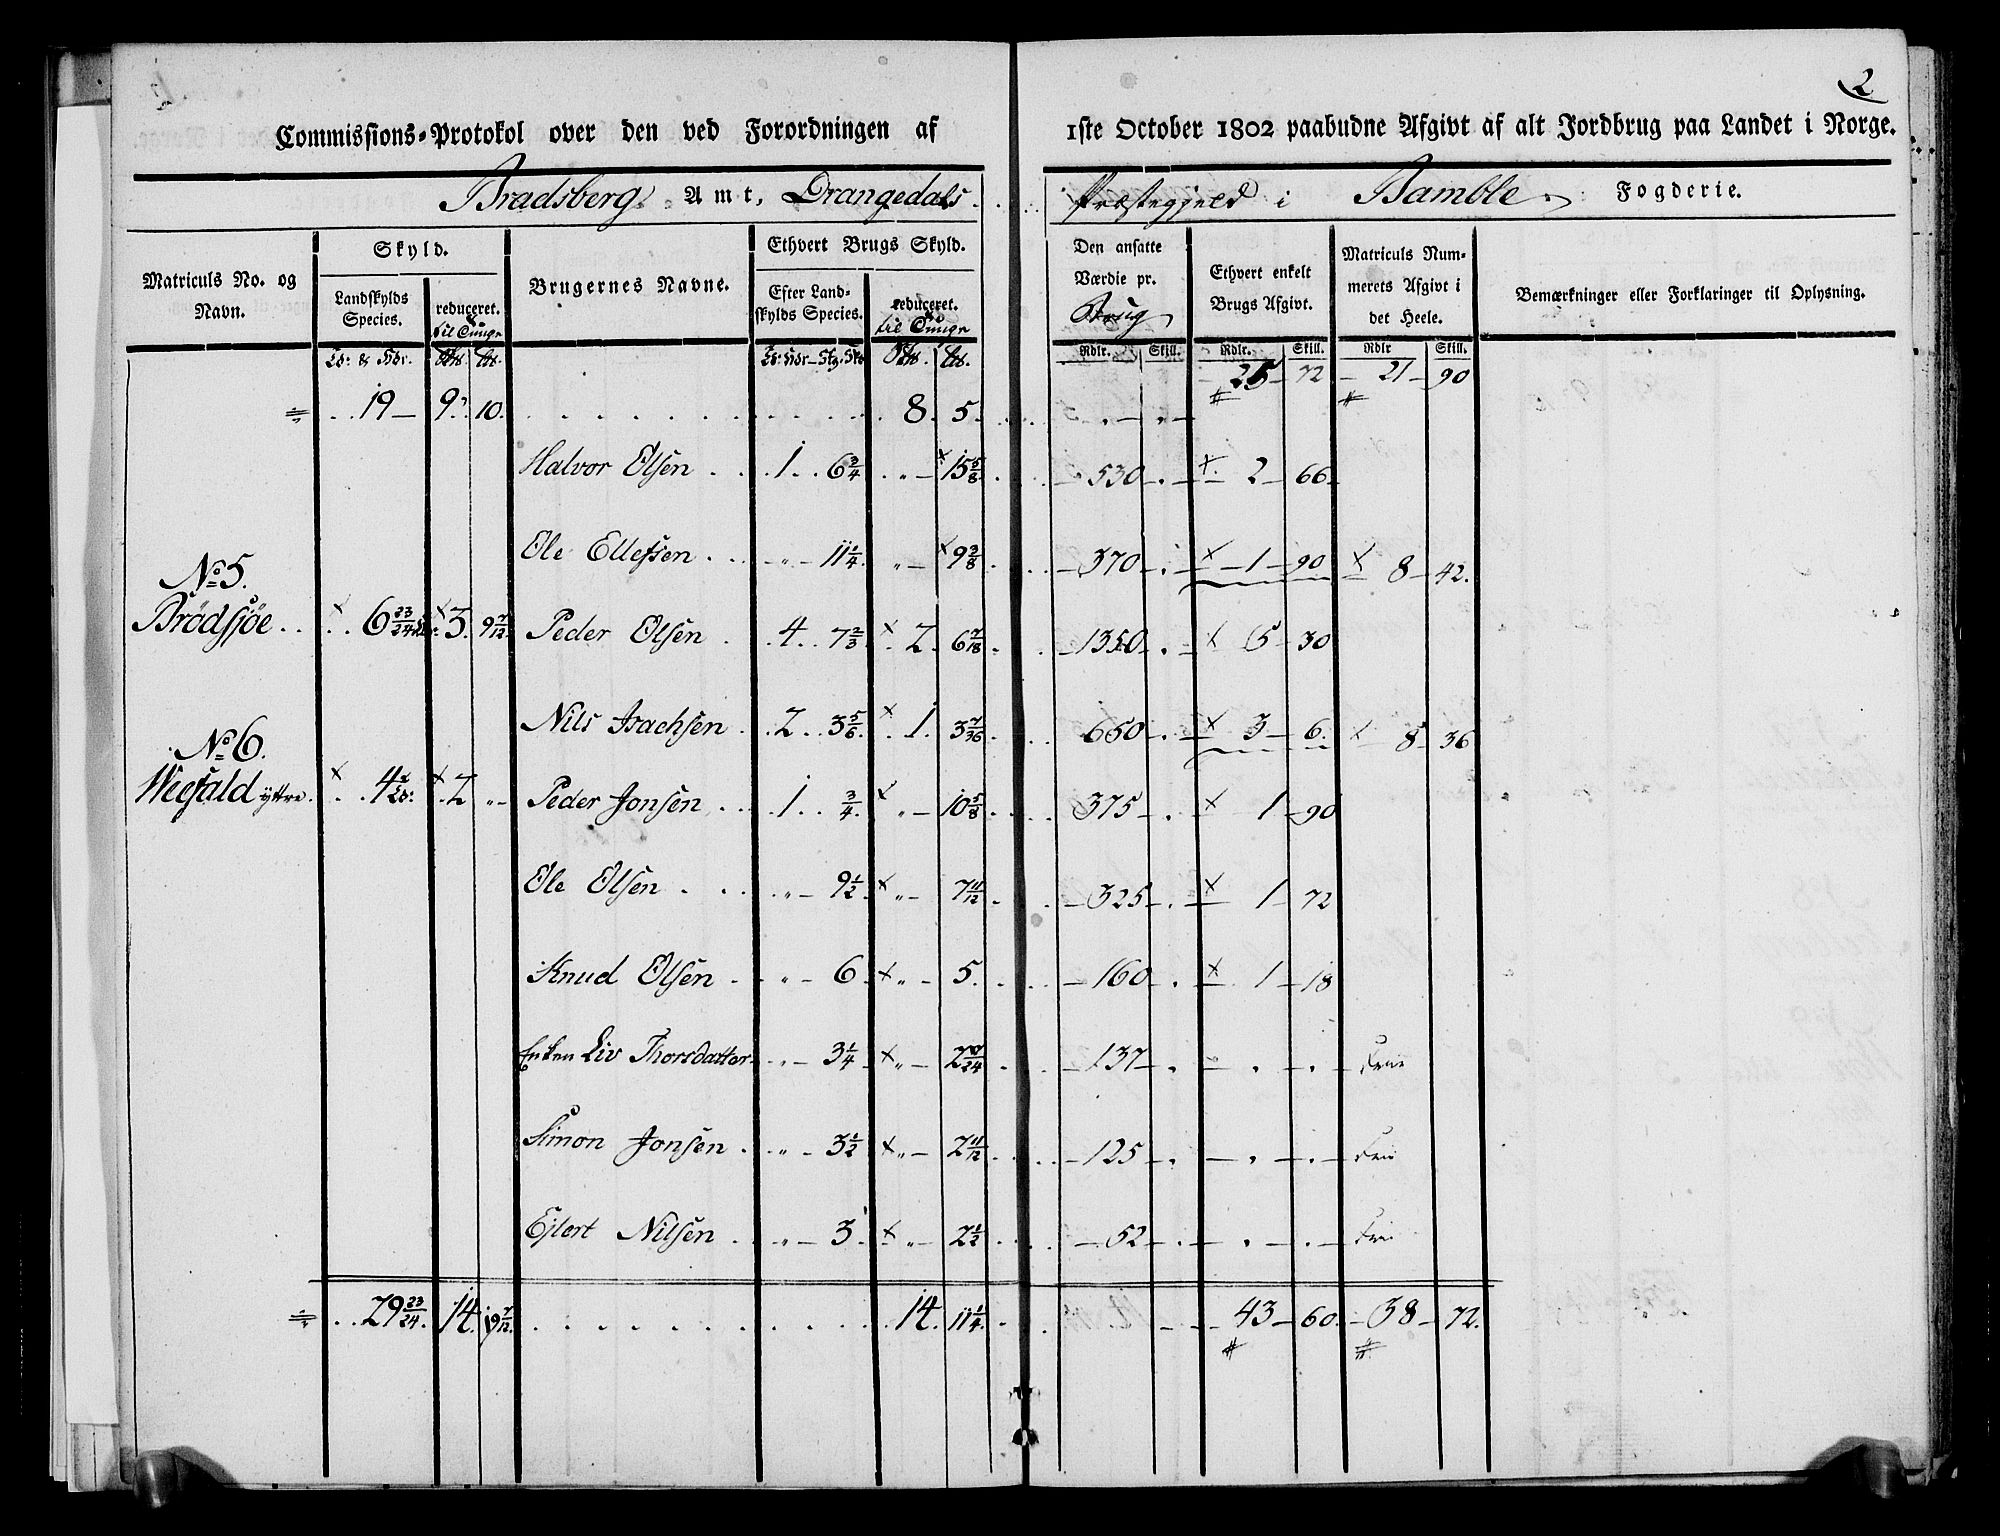 2
Commissions-Protokol over den ved Forordningen af 1ste October 1802 paabudne Afgivt af alt Jordbrug paa Landet i Norge.
Bradsberg Amt, Drangedals Præstegjeld i Bamble Fogderie.
Matriculs No. og Navn.
Skyld.
Landskylds Species.
reduceret.
til Tunge
Brugernes Navne.
Ethvert Brugs Skyld.
Efter Landskylds Species.
reduceret.
til Tunge
Den ansatte Værdie pr. Brug
Ethvert enkelt Brugs Afgivt.
Matriculs Nummerets Afgivt i det Heele.
Bemærkninger eller Forklaringer til Oplysning.
Rdlr. Skill. Rdlr. Skill. Rdlr Skill.
19 9 10 8 5 25 72 21 90
Halvor Olsen 1 6 3/4 15 5/8 530 2 66
Ole Ellefsen 11 1/4 9 3/8 370 1 90 8 42
No 5.
Brødsjøe 6 23/24 3 9 7/12 Peder Olsen 4 7 2/3 2 6 7/18 1350 5 30
Nils Isachsen 2 3 5/6 1 3 7/36 650 3 6 8 36
No 6.
Weefald yttre 4 2 Peder Jonsen 1 3/4 10 5/8 375 1 90
Ole Olsen 9 1/2 7 11/12 325 1 72
Knud Olsen 6 5 160 1 18
Enken Liv Thorsdatter 3 1/4 2 17/24 137 Frie
Simon Jonsen 3 1/2 2 11/12 125 Frie
Ejlert Nilsen 3 2 1/2 52 Frie
29 23/24 14 19 7/12 14 11 1/4 43 60 38 72